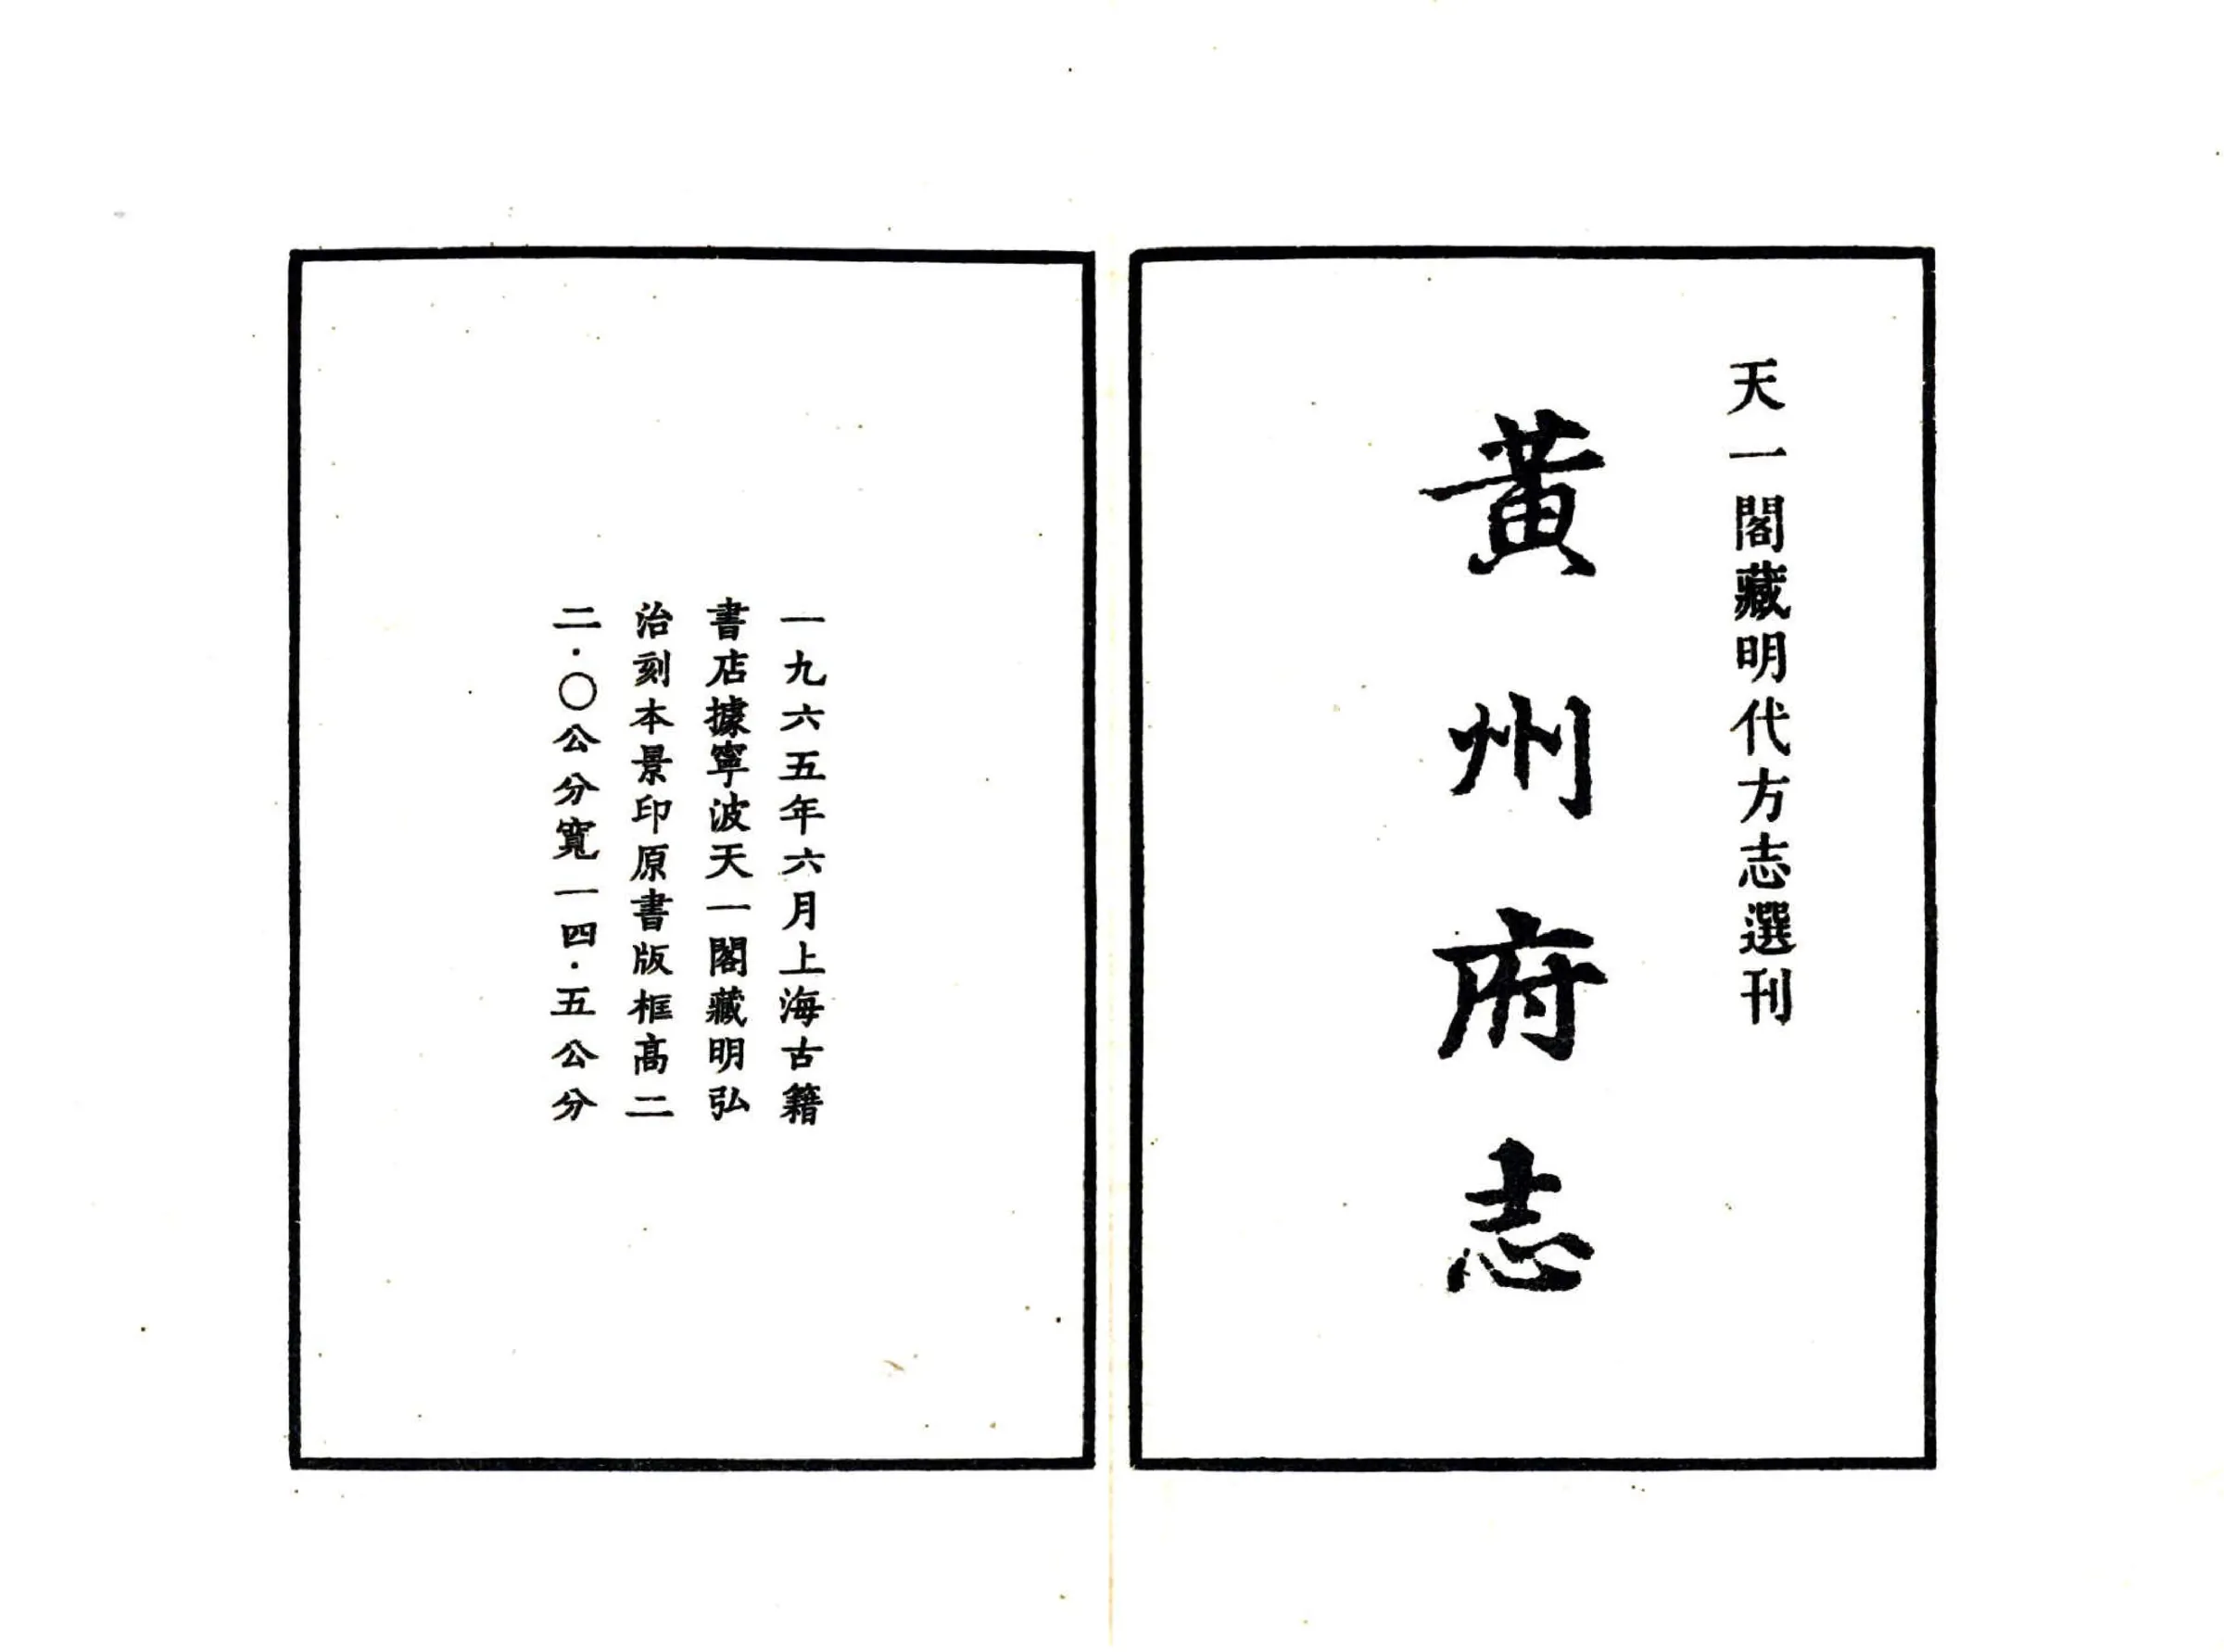 天一閣藏明代方志選刊
黃州府志
一九六五年六月上海古籍
書店據寧波天一閣藏明弘
治刻本景印原書版框高二
二·〇公分寬一四·五公分